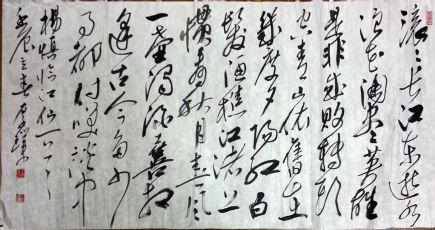 滚滚长江东逝水
浪花淘尽英雄
是非成败转头
空青山依旧在
几度夕阳红白
发渔樵江渚上
惯看秋月春风
一壶浊酒喜相
逢古今多少
事都付笑谈中
杨慎临江仙
壬辰立春